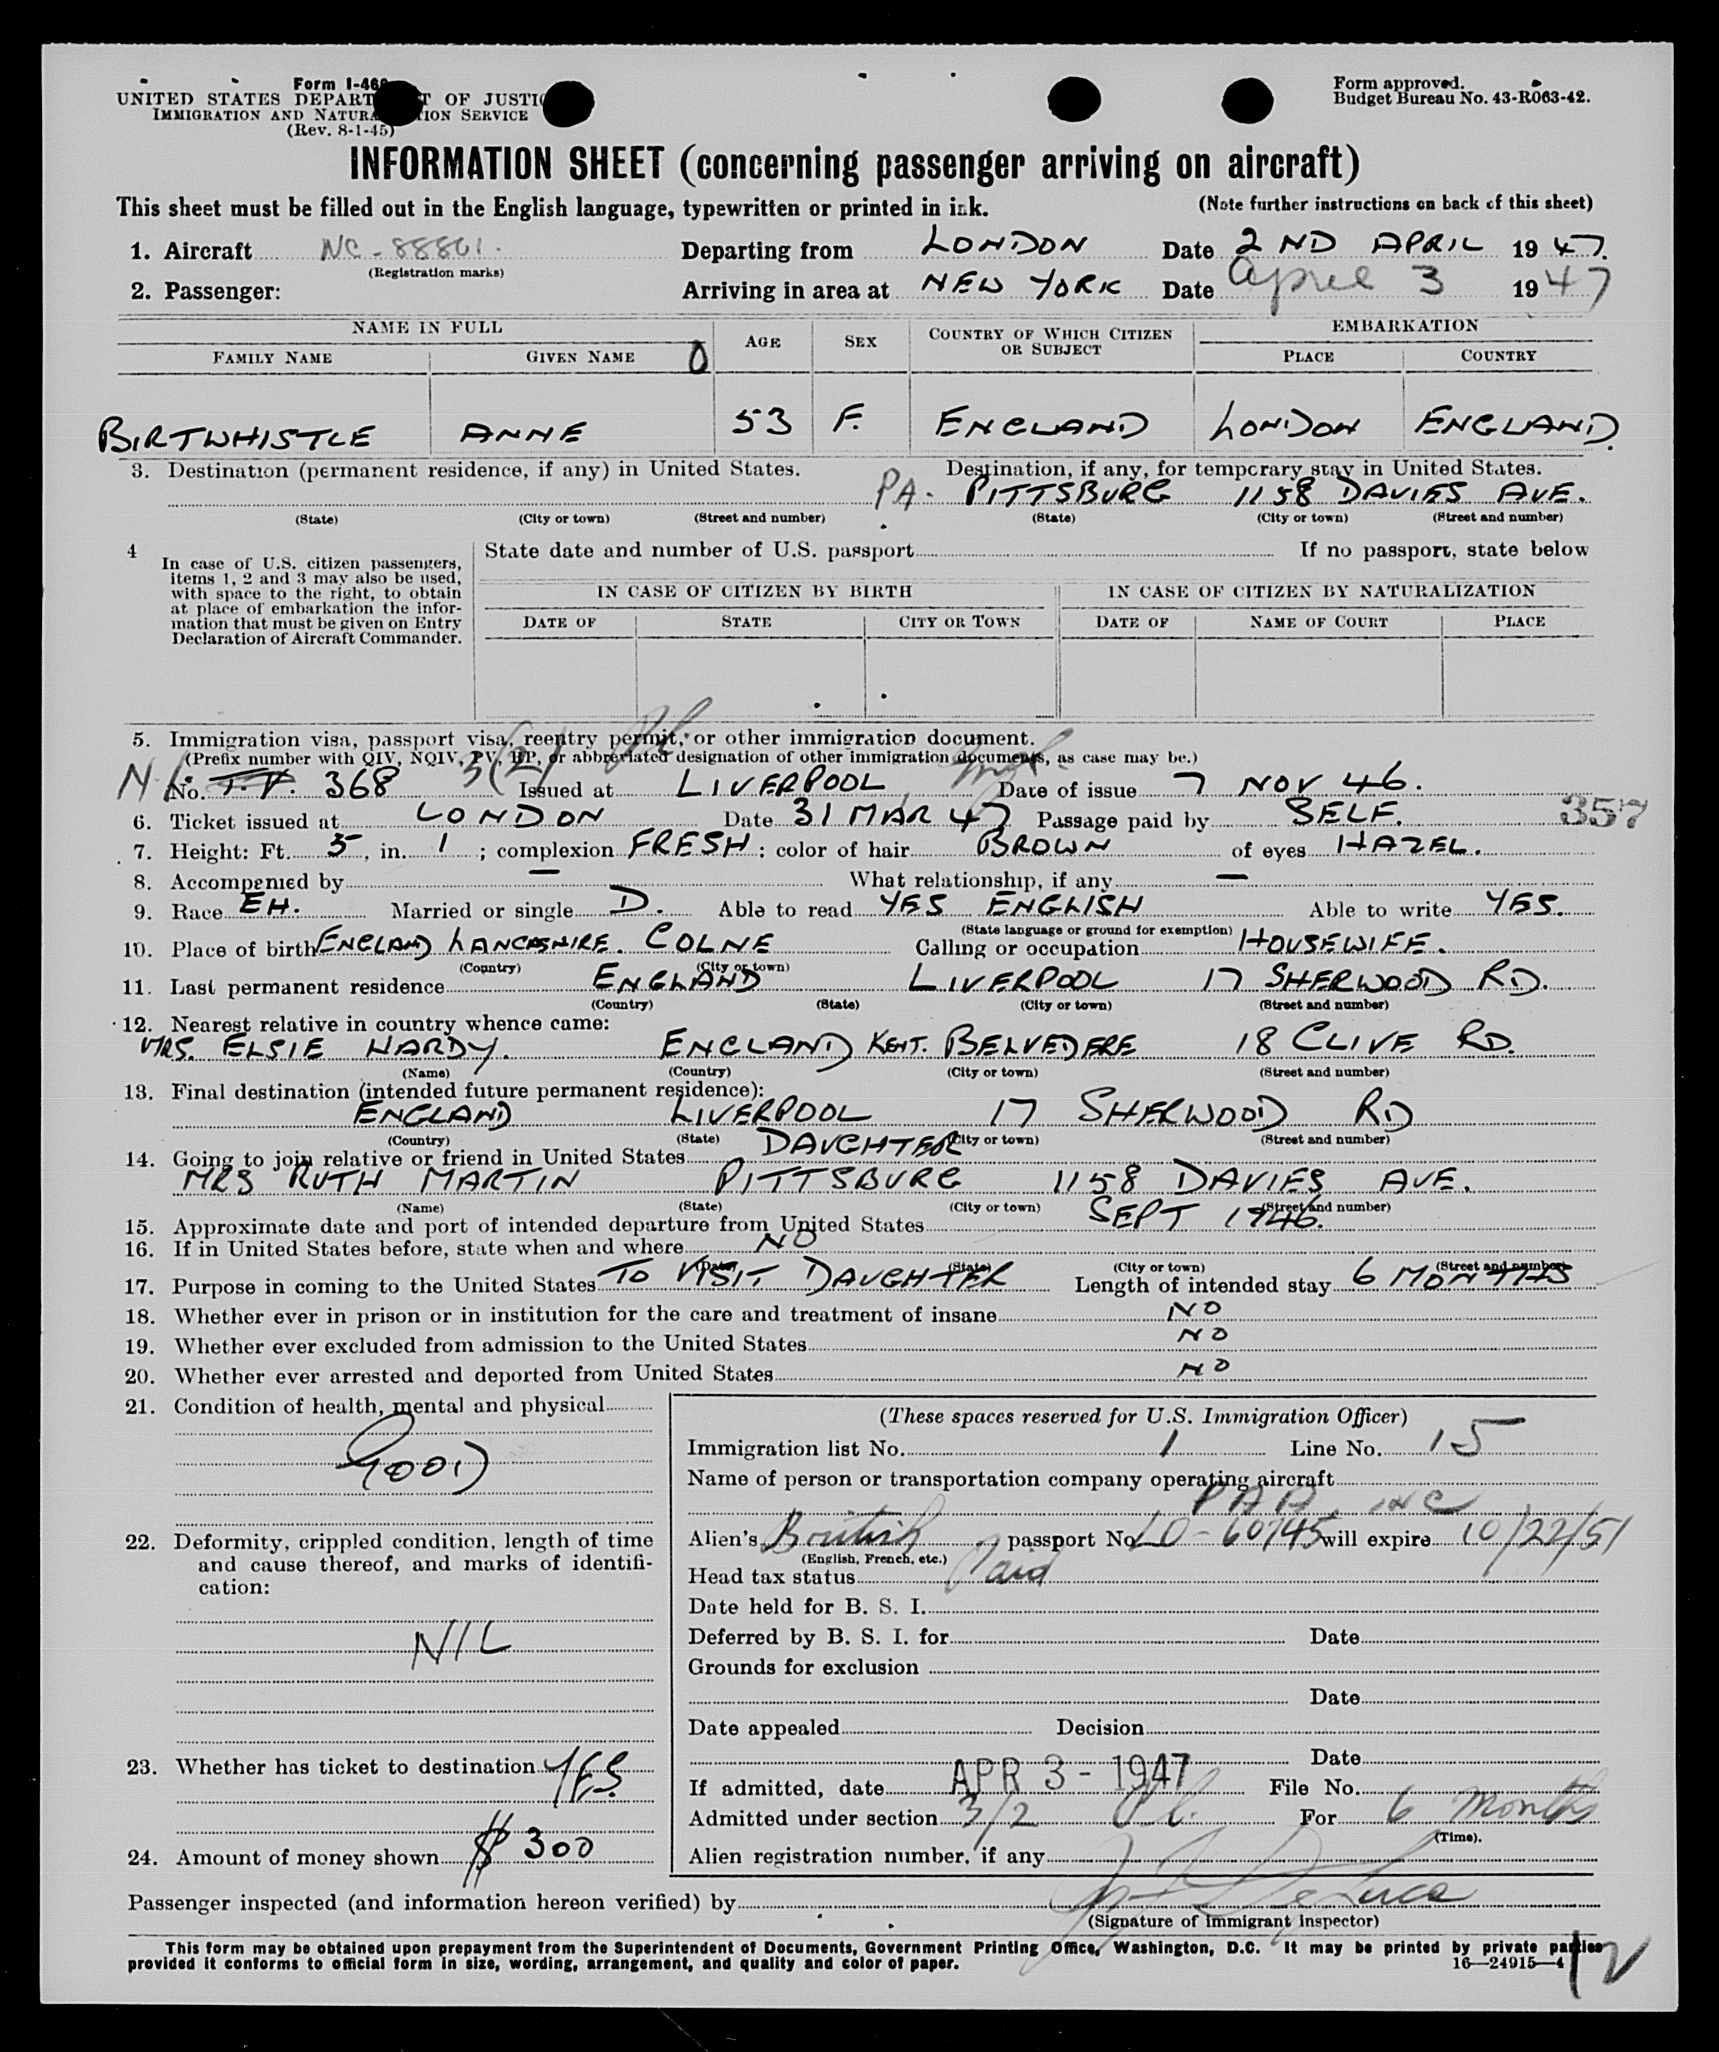 Form I-46
UNITED STATES DEPART T OF JUSTI
IMMIGRATION AND NATURA TION SERVICE
(Rev. 8-1-45)
Form approved.
Budget Bureau No. 43-R063-42.
INFORMATION SHEET (concerning passenger arriving on aircraft)
This sheet must be filled out in the English language, typewritten or printed in ink. (Note further instructions on back of this sheet)
1. Aircraft NC-88861. Departing from LONDON Date 2ND APRIL 1947.
(Registration marks)
2. Passenger: Arriving in area at NEW YORK Date April 3 1947
NAME IN FULL AGE SEX COUNTRY OF WHICH CITIZEN OR SUBJECT EMBARKATION
FAMILY NAME GIVEN NAME 0 PLACE COUNTRY
BIRTWHISTLE ANNE 53 F. ENGLAND LONDON ENGLAND.
3. Destination (permanent residence, if any) in United States. Destination, if any, for temporary stay in United States.
PA. PITTSBURG 1158 DAVIES AVE.
(State) (City or town) (Street and number) (State) (City or town) (Street and number)
4 In case of U.S. citizen passengers,
items 1, 2 and 3 may also be used,
with space to the right, to obtain
at place of embarkation the infor-
mation that must be given on Entry
Declaration of Aircraft Commander.
State date and number of U.S. passport If no passport, state below
IN CASE OF CITIZEN BY BIRTH IN CASE OF CITIZEN BY NATURALIZATION
DATE OF STATE CITY OR TOWN DATE OF NAME OF COURT PLACE
5. Immigration visa, passport visa, reentry permit, or other immigration document.
(Prefix number with QIV, NQIV, PV, RP, or abbreviated designation of other immigration documents, as case may be.)
No. T.V. 368 3(2) Issued at LIVERPOOL Date of issue 7 NOV 46.
6. Ticket issued at LONDON Date 31 MAR 47 Passage paid by SELF. 357
7. Height: Ft. 5, in. 1; complexion FRESH; color of hair BROWN of eyes HAZEL.
8. Accompanied by — What relationship, if any —
9. Race EH. Married or single D. Able to read YES ENGLISH Able to write YES.
(State language or ground for exemption)
10. Place of birth ENGLAND LANCASHIRE. COLNE Calling or occupation HOUSEWIFE.
(Country) (City or town)
11. Last permanent residence ENGLAND LIVERPOOL 17 SHERWOOD RD.
(Country) (State) (City or town) (Street and number)
12. Nearest relative in country whence came:
MRS. ELSIE HARDY. ENGLAND KENT. BELVEDERE 18 CLIVE RD.
(Name) (Country) (City or town) (Street and number)
13. Final destination (intended future permanent residence):
ENGLAND LIVERPOOL 17 SHERWOOD RD
(Country) (State) (City or town) (Street and number)
14. Going to join relative or friend in United States DAUGHTER
MRS RUTH MARTIN PITTSBURG 1158 DAVIES AVE.
(Name) (State) (City or town) (Street and number)
15. Approximate date and port of intended departure from United States SEPT 1946.
16. If in United States before, state when and where NO
(Date) (State) (City or town) (Street and number)
17. Purpose in coming to the United States TO VISIT DAUGHTER Length of intended stay 6 MONTHS
18. Whether ever in prison or in institution for the care and treatment of insane NO
19. Whether ever excluded from admission to the United States NO
20. Whether ever arrested and deported from United States NO
21. Condition of health, mental and physical
GOOD
22. Deformity, crippled condition, length of time
and cause thereof, and marks of identifi-
cation:
NIL
23. Whether has ticket to destination YES.
24. Amount of money shown $ 300
(These spaces reserved for U.S. Immigration Officer)
Immigration list No. 1 Line No. 15
Name of person or transportation company operating aircraft
PAA. INC
Alien's British passport No. LO-60745 will expire 10/22/51
(English, French, etc.)
Head tax status Paid
Date held for B. S. I.
Deferred by B. S. I. for Date
Grounds for exclusion
Date
Date appealed Decision
Date
If admitted, date APR 3 - 1947 File No.
Admitted under section 3/2 For 6 months
(Time).
Alien registration number, if any
Passenger inspected (and information hereon verified) by DeLuca
(Signature of Immigrant Inspector)
This form may be obtained upon prepayment from the Superintendent of Documents, Government Printing Office, Washington, D.C. It may be printed by private parties
provided it conforms to official form in size, wording, arrangement, and quality and color of paper. 16—24915—4